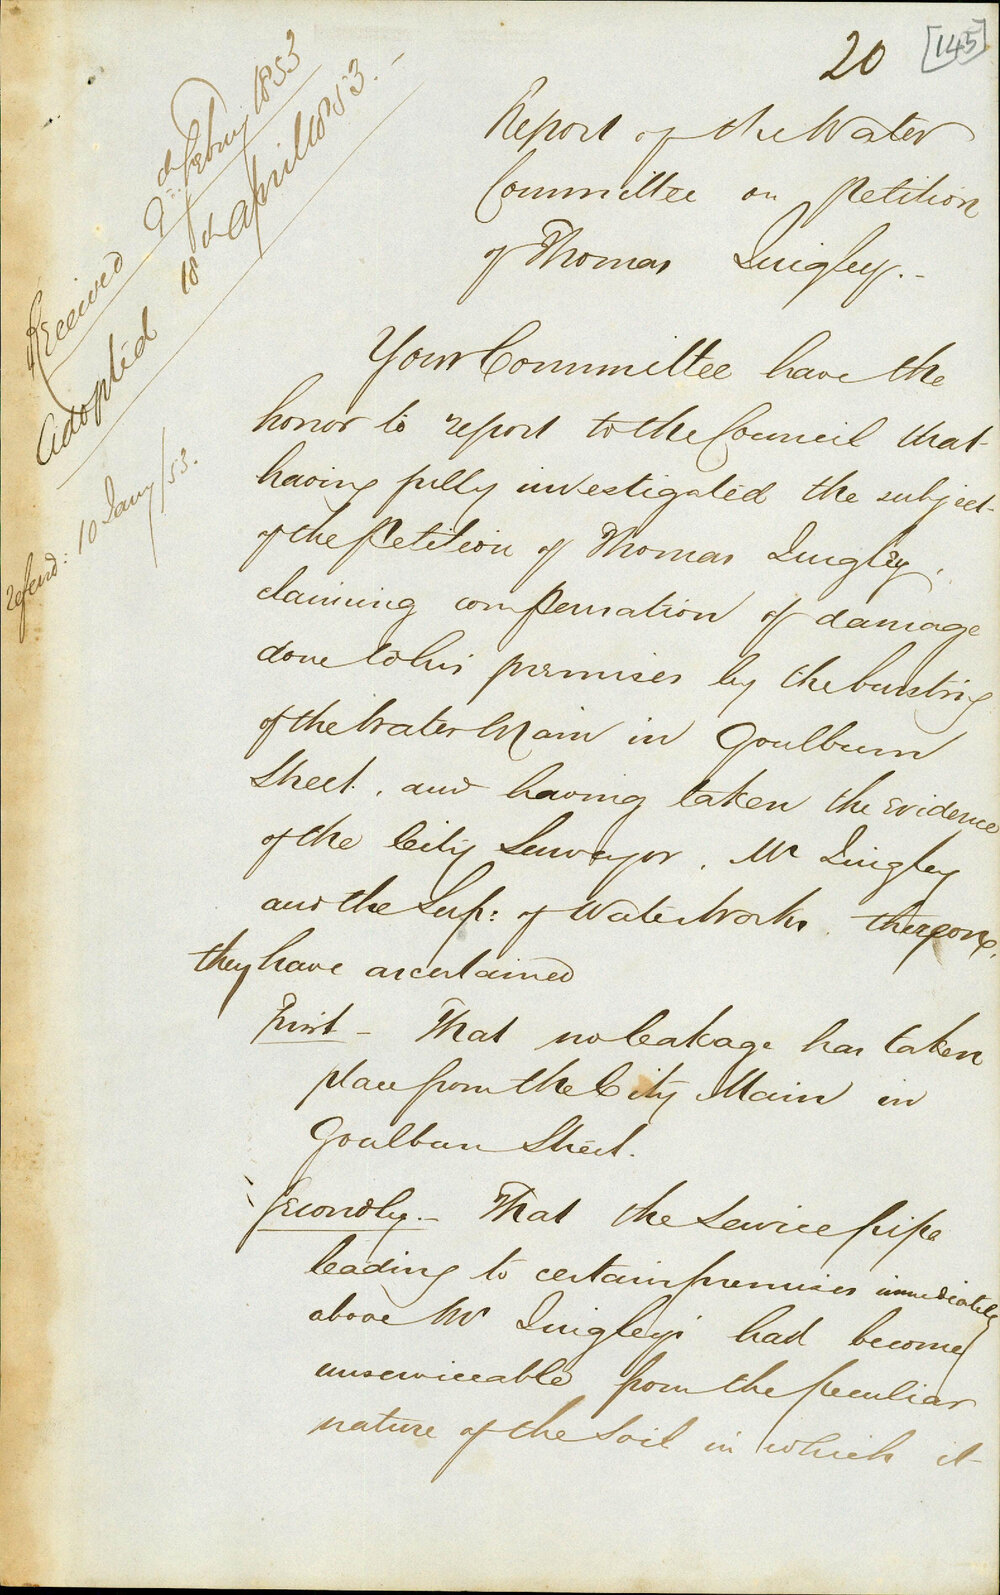 20 [145]
Received 9th Febry 1853
Adopted 18th April 1853.
Referd: 10 Jany /53.
Report of the Water
Committee on Petition
of Thomas Quigley.
Your Committee have the
honor to report to the Council that
having fully investigated the subject
of the Petition of Thomas Quigley,
claiming compensation of damage
done to his premises by the bursting
of the Water Main in Goulburn
Street, and having taken the evidence
of the City Surveyor, Mr Quigley
and the Sup: of Water Works, thereon,
they have ascertained
First - That no leakage has taken
place from the City Main in
Goulburn Street.
Secondly - That the service pipe
leading to certain premises immediately
above Mr Quigley's had become
unserviceable from the peculiar
nature of the soil in which it